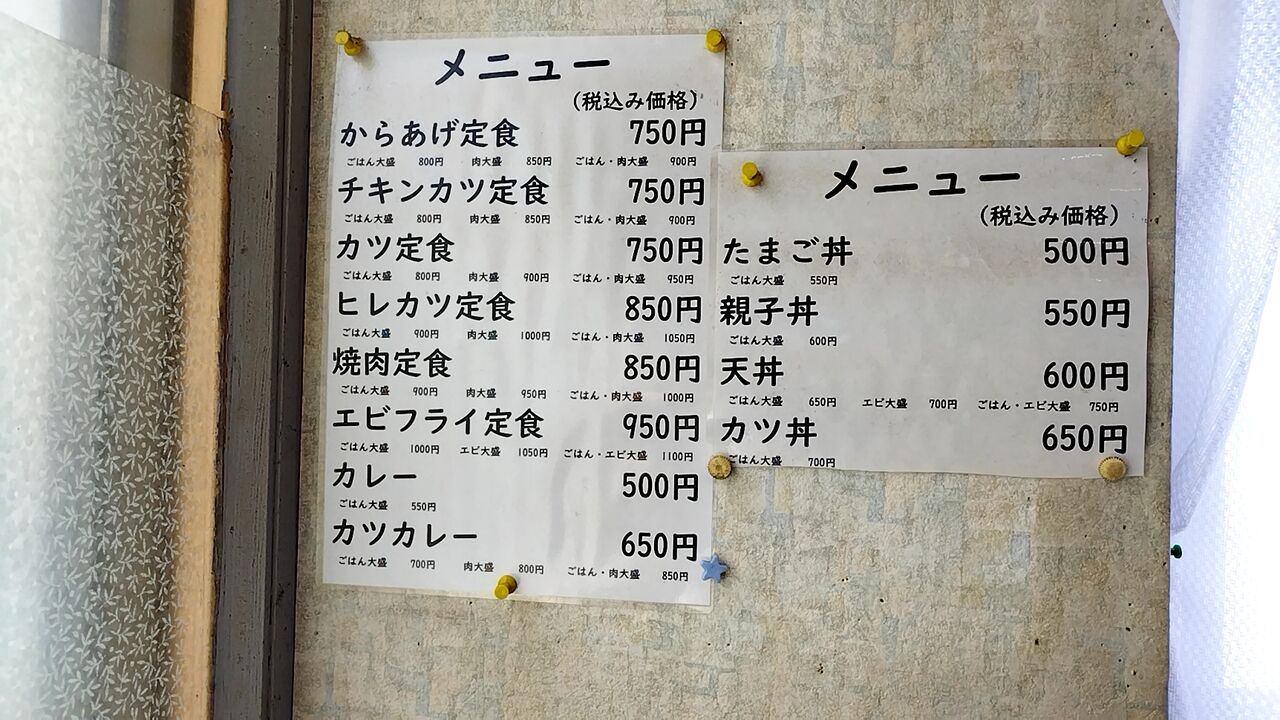 メニュー
(税込み価格)
からあげ定食 750円
ごはん大盛 800円 肉大盛 850円 ごはん・肉大盛 900円
チキンカツ定食 750円
ごはん大盛 800円 肉大盛 850円 ごはん・肉大盛 900円
カツ定食 750円
ごはん大盛 800円 肉大盛 900円 ごはん・肉大盛 950円
ヒレカツ定食 850円
ごはん大盛 900円 肉大盛 1000円 ごはん・肉大盛 1050円
焼肉定食 850円
ごはん大盛 900円 肉大盛 950円 ごはん・肉大盛 1000円
エビフライ定食 950円
ごはん大盛 1000円 エビ大盛 1050円 ごはん・エビ大盛 1100円
カレー 500円
ごはん大盛 550円
カツカレー 650円
ごはん大盛 700円 肉大盛 800円 ごはん・肉大盛 850円
メニュー
(税込み価格)
たまご丼 500円
ごはん大盛 550円
親子丼 550円
ごはん大盛 600円
天丼 600円
ごはん大盛 650円 エビ大盛 700円 ごはん・エビ大盛 750円
カツ丼 650円
ごはん大盛 700円